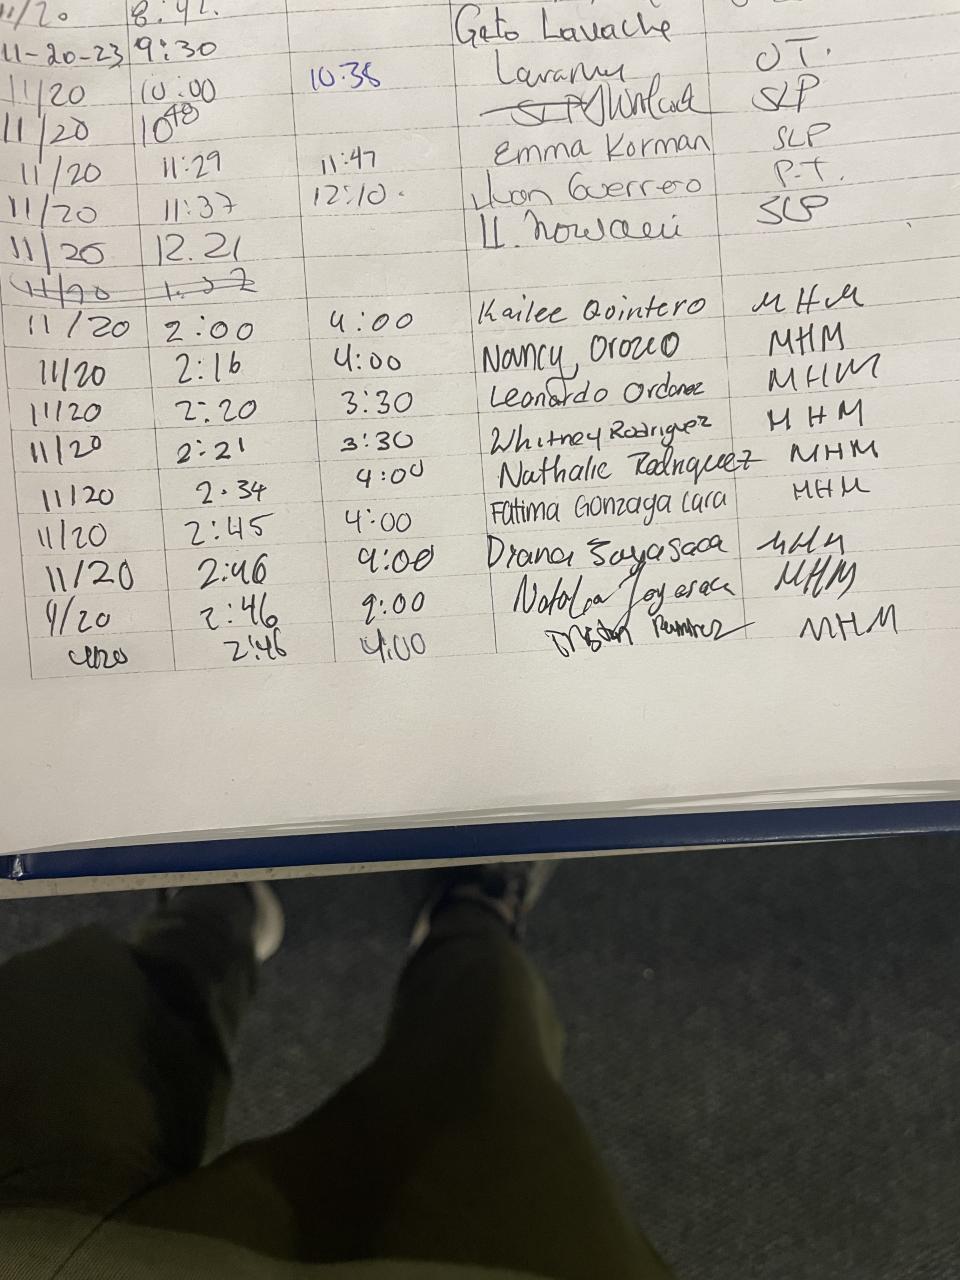 11/20 8:42.
11-20-23 9:30 Geto Lavache
11/20 10:00 10:38 OT.
11/20 10 48 SLP SLP
11/20 11:29 11:47 Emma Korman SLP
11/20 11:37 12:10. Juan Guerrero P.T.
11/20 12.21 SLP
11/20
11/20 2:00 4:00 Kailee Quintero MHM
11/20 2:16 4:00 Nancy Orozco MHM
11/20 2:20 3:30 Leonardo Ordonez MHM
11/20 2:21 3:30 Whitney Rodriguez MHM
11/20 2.34 4:00 Nathalie Rodriguez MHM
11/20 2:45 4:00 Fatima Gonzaga Lara MHM
11/20 2:46 4:00 Diana Sayasaca MHM
11/20 2:46 4:00 MHM
11/20 2:46 4:00 Ramirez MHM